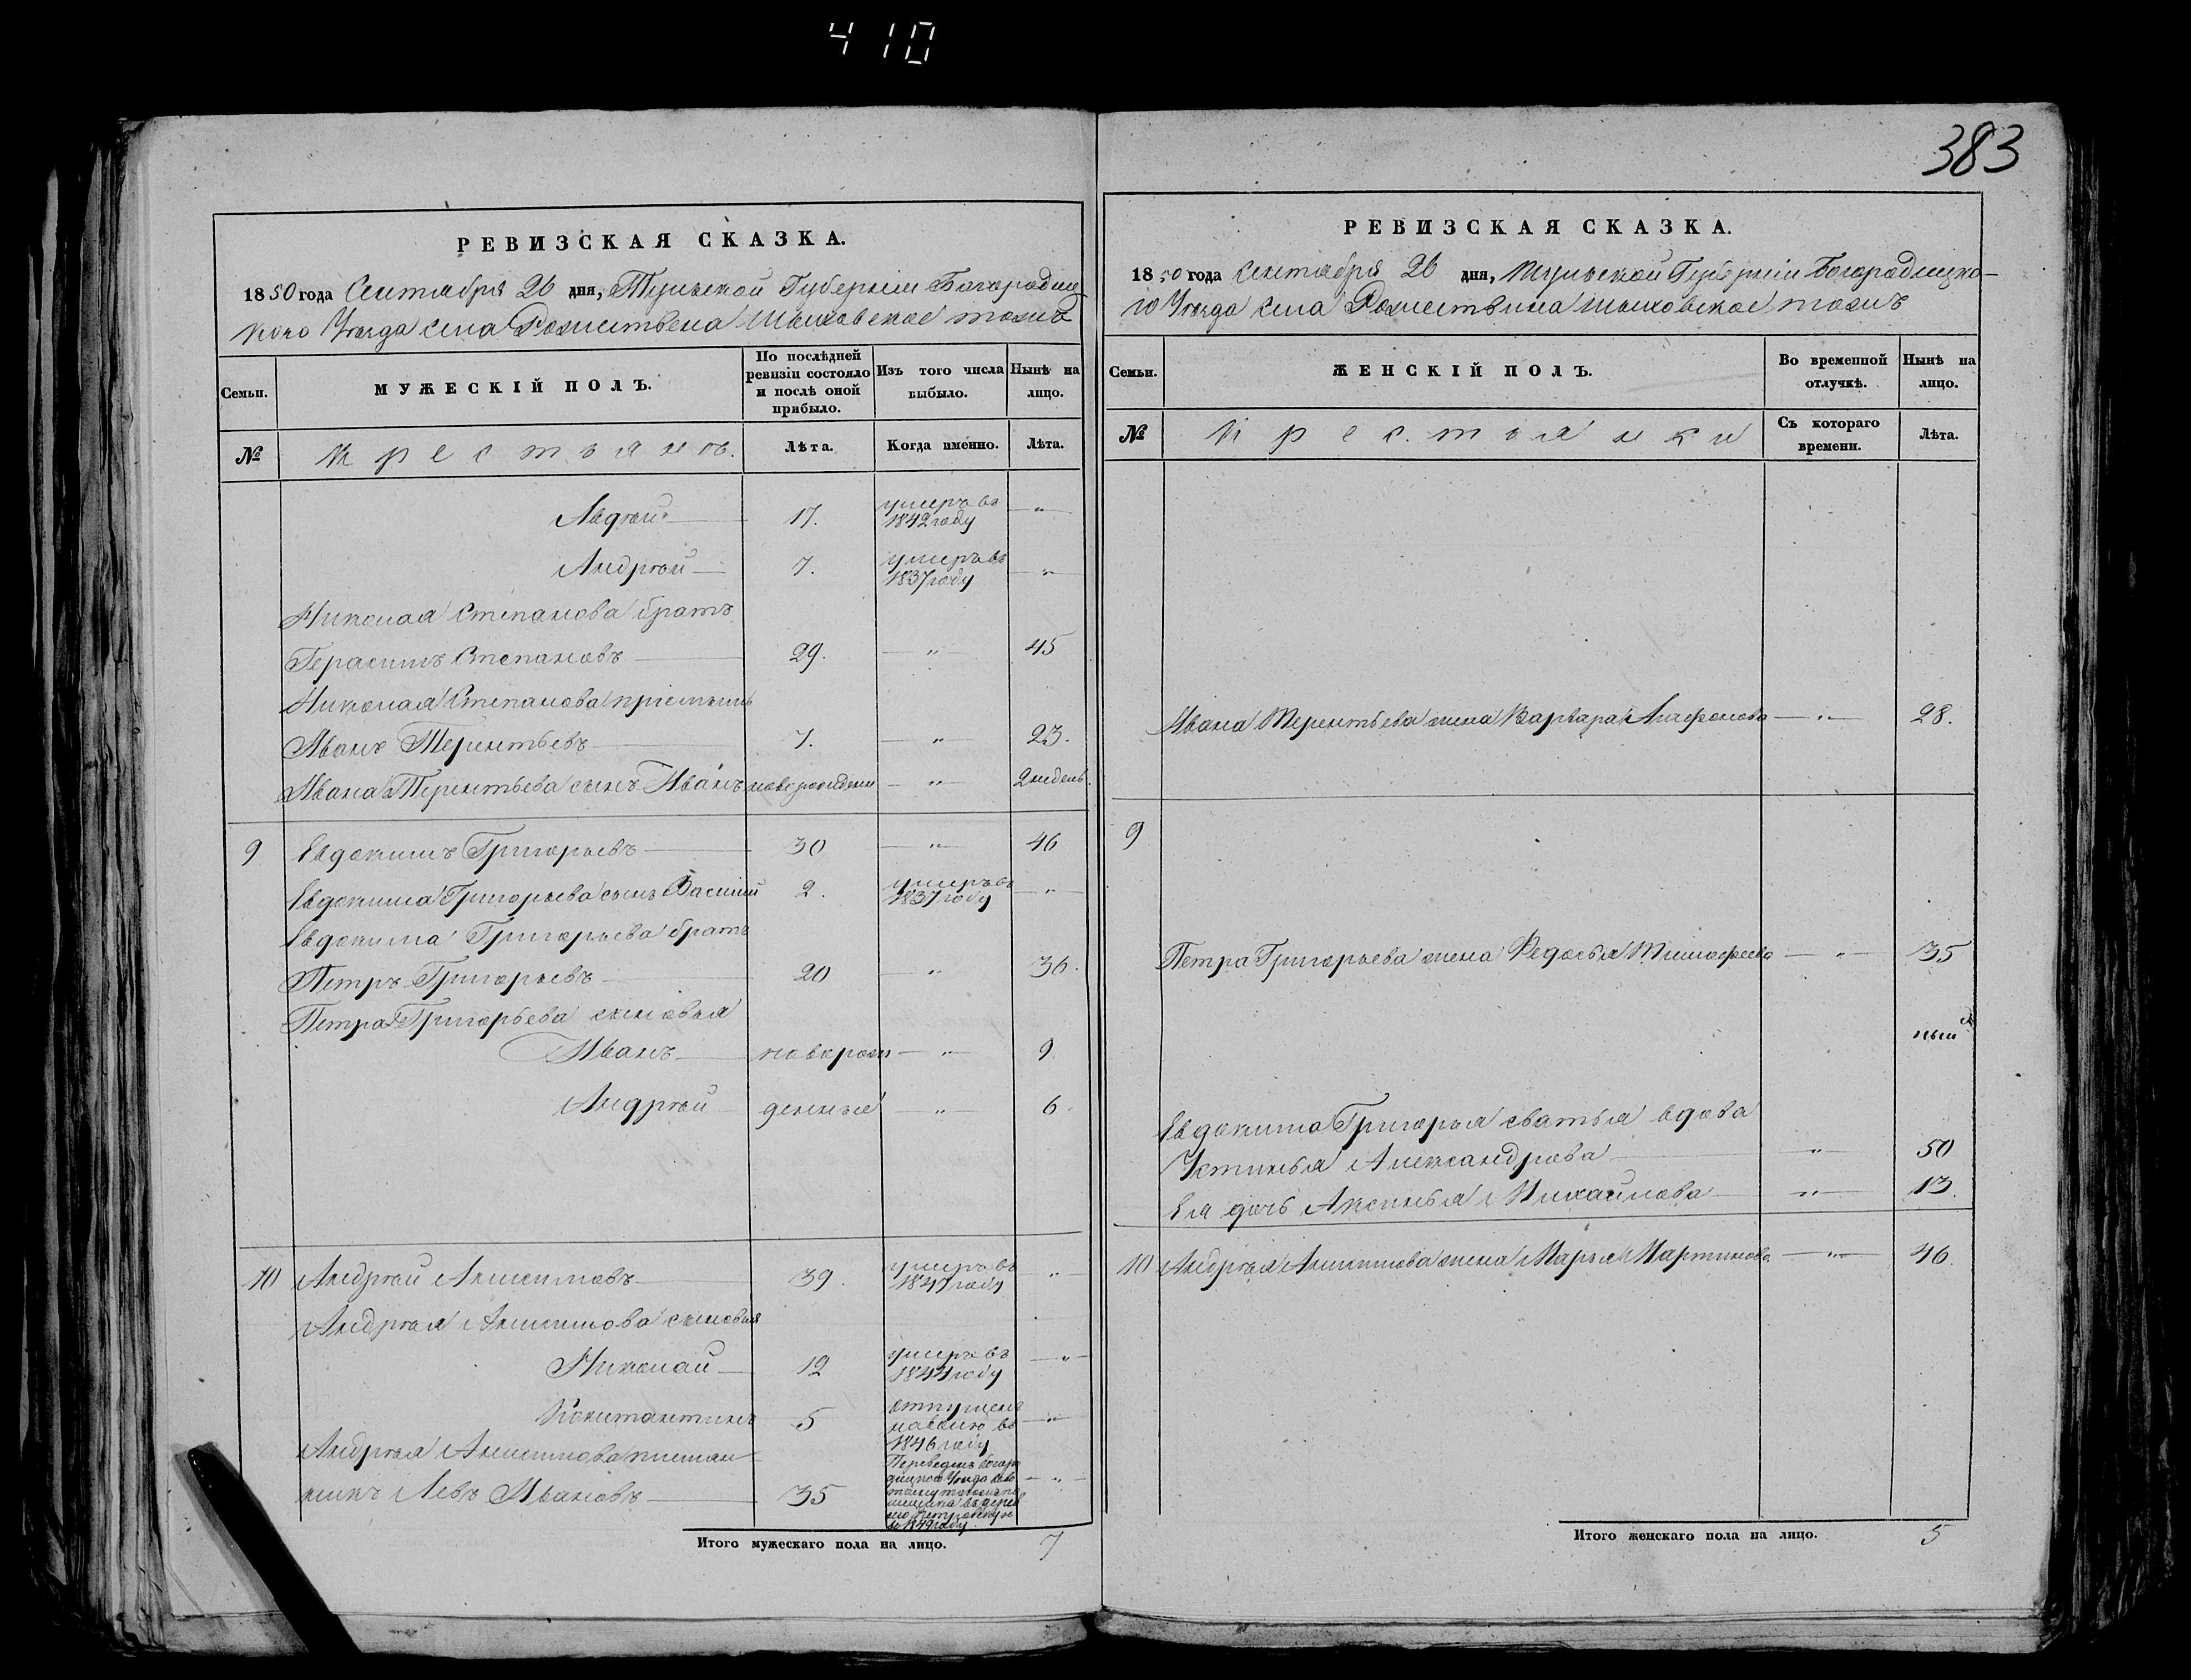 410
383
РЕВИЗСКАЯ СКАЗКА.
1850 года Сентября 26 дня, Тульской Губерніи Богородиц
каго Уѣзда села Рождествена тожъ
Семьи.
МУЖЕСКІЙ ПОЛЪ.
По послѣдней ревизіи состояло и послѣ оной прибыло.
Изъ того числа выбыло.
Нынѣ на лицо.
№ Крестьяновъ. Лѣта. Когда именно. Лѣта.
Авдѣй 17. умеръ въ 1842 году „
Андрѣй 7. умеръ въ 1837 году „
Николая Степанова братъ
Герасимъ Степановъ 29. „ 45
Николая Степанова пріемышъ
Иванъ Терентьевъ 7. „ 23.
Ивана Терентьева сынъ Иванъ новорожденъ „ 2 недель
9 Евдокимъ Григорьевъ 30 „ 46
Евдокима Григорьева сынъ Василий 2. умеръ въ 1837 году „
Евдокима Григорьева братъ
Петръ Григорьевъ 20 „ 36.
Петра Григорьева сыновья
Иванъ новорож „ 9
Андрѣй денные „ 6.
10 Андрѣй 39. умеръ въ году „
Андрѣя сыновья
Николай 12 умеръ въ 1844 году „
Константинъ 5 отпущенъ на волю въ 1846 году „
Андрѣя племян
никъ Левъ Ивановъ 35 Переведенъ Уѣзда въ 1849 году „
Итого мужескаго пола на лицо. 7
РЕВИЗСКАЯ СКАЗКА.
1850 года Сентября 26 дня, Тульской Губерніи Богородицка-
го Уѣзда села Рождествина тожъ
Семьи.
ЖЕНСКІЙ ПОЛЪ.
Во временной отлучкѣ.
Нынѣ на лицо.
№ Крестьянки Съ котораго времени. Лѣта.
Ивана Терентьева жена Варвара Агафонова „ 28.
9
Петра Григорьева жена Федосья Тимофеева „ 35
Евдокима Григорья сватья вдова
Устинья Александрова „ 50
Ея дочь Аксинья Михайлова „ 13.
10 Андрѣя жена Марья Мартинова „ 46.
Итого женскаго пола на лицо. 5